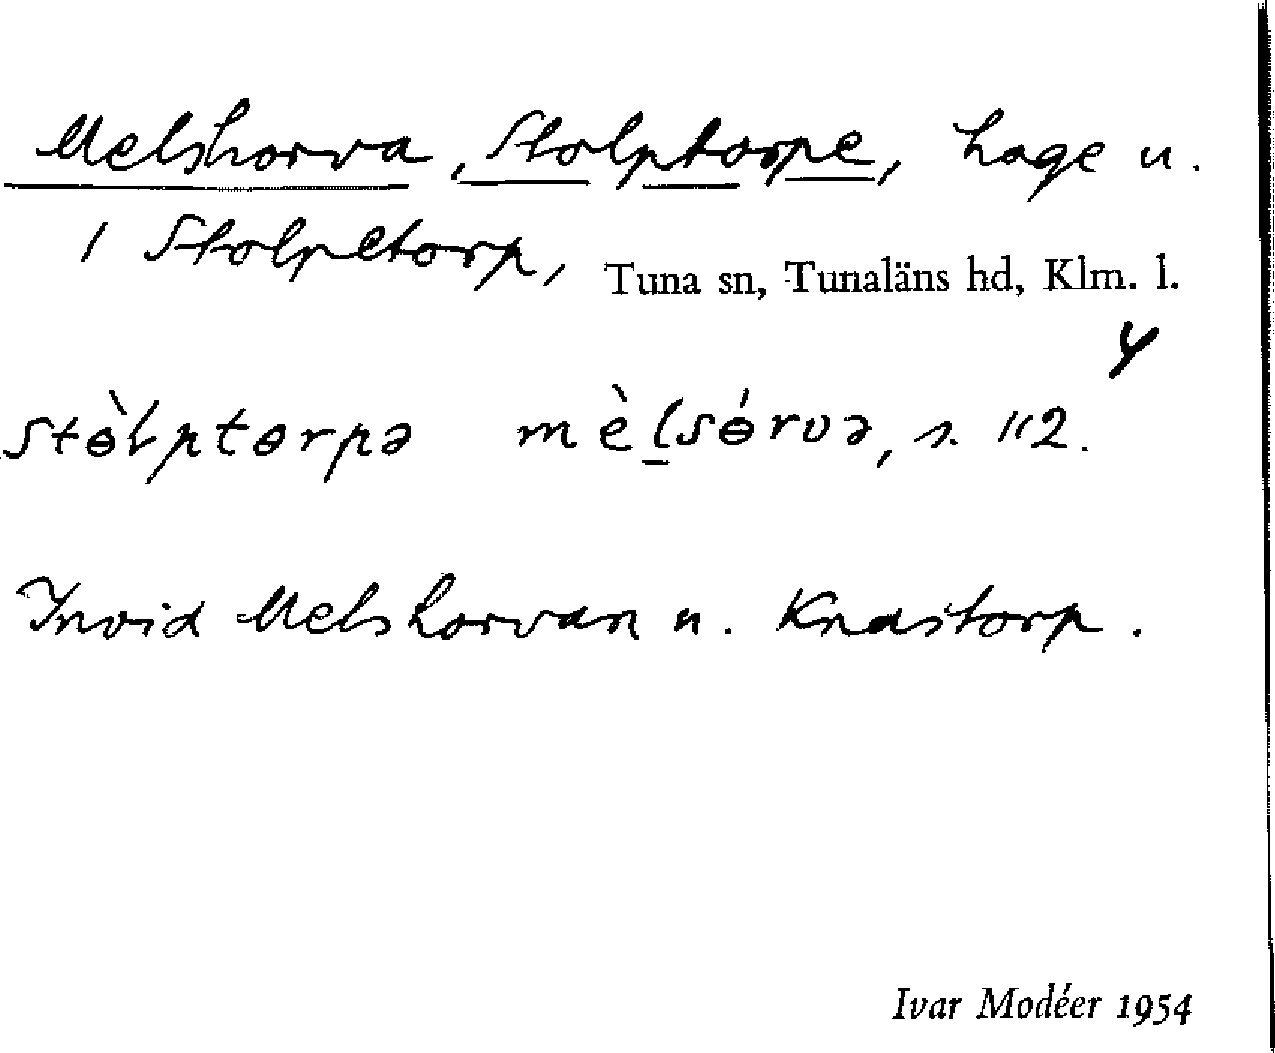 Melshorva, Stolptorpe, hage u.
1 Stolpetorp, Tuna sn, Tunaläns hd, Klm. l.
4
stɵ̀lptɵrpə mèlsɵ́rvə, s. 112.
Invid Melshorvan u. Knastorp.
Ivar Modéer 1954